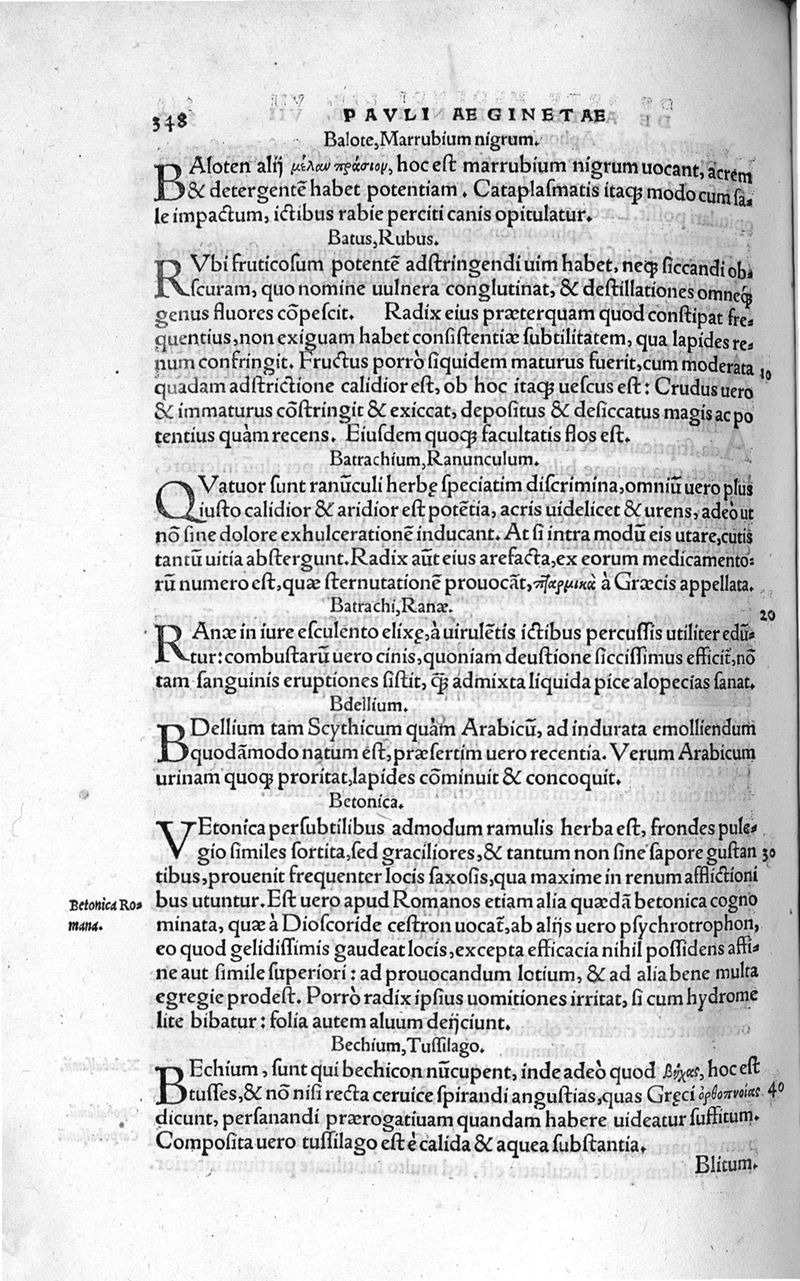 348
PAVLI AEGINETAE
Balote, Marrubium nigrum.
BAloten alij μέλαν πράσιον, hoc est marrubium nigrum uocant, acrem
& detergentẽ habet potentiam. Cataplasmatis itaq; modo cum sa-
le impactum, ictibus rabie perciti canis opitulatur.
Batus, Rubus.
RVbi fruticosum potentẽ adstringendi uim habet, neq; siccandi ob-
scuram, quo nomine uulnera conglutinat, & destillationes omneq;
genus fluores cõpescit. Radix eius præterquam quod constipat fre-
quentius, non exiguam habet consistentiæ subtilitatem, qua lapides re-
num confringit. Fructus porrò siquidem maturus fuerit, cum moderata
10
quadam adstrictione calidior est, ob hoc itaq; uescus est: Crudus uero
& immaturus cõstringit & exiccat, depositus & desiccatus magis ac po
tentius quàm recens. Eiusdem quoq; facultatis flos est.
Batrachium, Ranunculum.
QVatuor sunt ranũculi herbę speciatim discrimina, omniũ uero plus
iusto calidior & aridior est potẽtia, acris uidelicet & urens, adeò ut
nõ sine dolore exhulcerationẽ inducant. At si intra modũ eis utare, cutis
tantũ uitia abstergunt. Radix aũt eius arefacta, ex eorum medicamento-
rũ numero est, quæ sternutationẽ prouocãt, πταρμικὰ à Græcis appellata.
Batrachi, Ranæ.
20
RAnæ in iure esculento elixę, à uirulẽtis ictibus percussis utiliter edũ-
tur: combustarũ uero cinis, quoniam deustione siccissimus efficit̃, nõ
tam sanguinis eruptiones sistit, q̃ȝ admixta liquida pice alopecias sanat.
Bdellium.
BDellium tam Scythicum quàm Arabicũ, ad indurata emolliendum
quodãmodo natum est, præsertim uero recentia. Verum Arabicum
urinam quoq; proritat, lapides cõminuit & concoquit.
Betonica.
VEtonica persubtilibus admodum ramulis herba est, frondes pule-
gio similes sortita, sed graciliores, & tantum non sine sapore gustan
30
tibus, prouenit frequenter locis saxosis, qua maxime in renum afflictioni
Betonica Ro-
mana.
bus utuntur. Est uero apud Romanos etiam alia quædã betonica cogno
minata, quæ à Dioscoride cestron uocat̃, ab alijs uero psychrotrophon,
eo quod gelidissimis gaudeat locis, excepta efficacia nihil possidens affi-
ne aut simile superiori: ad prouocandum lotium, & ad alia bene multa
egregie prodest. Porrò radix ipsius uomitiones irritat, si cum hydrome
lite bibatur: folia autem aluum deijciunt.
Bechium, Tussilago.
BEchium, sunt qui bechicon nũcupent, inde adeò quod βῆχας, hoc est
tusses, & nõ nisi recta ceruice spirandi angustias, quas Gręci ὀρθοπνοίας
40
dicunt, persanandi prærogatiuam quandam habere uideatur suffitum.
Composita uero tussilago est è calida & aquea substantia.
Blitum.